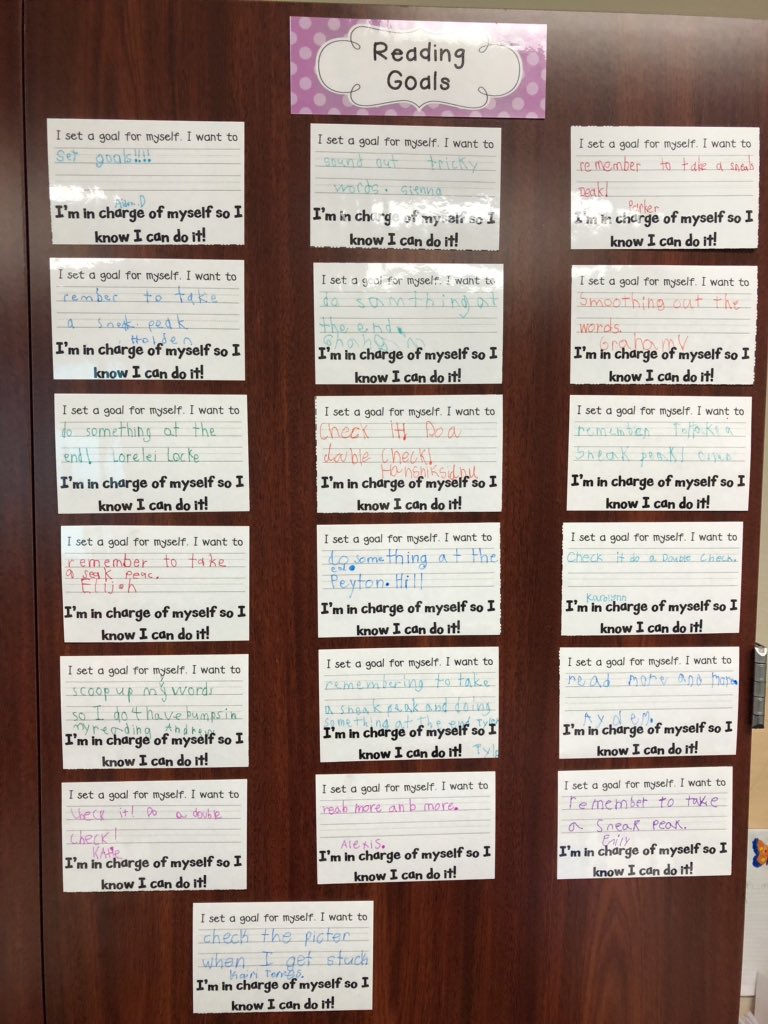 Reading
Goals
I set a goal for myself. I want to
set goals!!!!
I'm in charge of myself so I
know I can do it!
I set a goal for myself. I want to
sound out tricky
words. sienna
I'm in charge of myself so I
know I can do it!
I set a goal for myself. I want to
remember to take a sneak
peak!
Parker
I'm in charge of myself so I
know I can do it!
I set a goal for myself. I want to
rember to take
a sneak peak
Haiden
I'm in charge of myself so I
know I can do it!
I set a goal for myself. I want to
do somthing at
the end.
I'm in charge of myself so I
know I can do it!
I set a goal for myself. I want to
Smoothing out the
words.
Graham V
I'm in charge of myself so I
know I can do it!
I set a goal for myself. I want to
do something at the
end! Lorelei Locke
I'm in charge of myself so I
know I can do it!
I set a goal for myself. I want to
Check It! Do a
double check!
I'm in charge of myself so I
know I can do it!
I set a goal for myself. I want to
remember
Sneak peak!
I'm in charge of myself so I
know I can do it!
I set a goal for myself. I want to
remember to take
a seak peac.
Elijah
I'm in charge of myself so I
know I can do it!
I set a goal for myself. I want to
do something at the
end.
Peyton. Hill
I'm in charge of myself so I
know I can do it!
I set a goal for myself. I want to
Check it do a Double Check.
I'm in charge of myself so I
know I can do it!
I set a goal for myself. I want to
scoop up my words
so I don't have bumps in
my reading Andrew
I'm in charge of myself so I
know I can do it!
I set a goal for myself. I want to
remembering to take
a sneak peak and doing
something at the end Tyler
I'm in charge of myself so I
know I can do it!
Tyle
I set a goal for myself. I want to
read more and more.
Ryder.
I'm in charge of myself so I
know I can do it!
I set a goal for myself. I want to
Check it! Do a double
check!
Katie
I'm in charge of myself so I
know I can do it!
I set a goal for myself. I want to
reab more anb more.
Alexis.
I'm in charge of myself so I
know I can do it!
I set a goal for myself. I want to
remember to take
a sneak peak.
Emily
I'm in charge of myself so I
know I can do it!
I set a goal for myself. I want to
check the picter
when I get stuck
I'm in charge of myself so I
know I can do it!